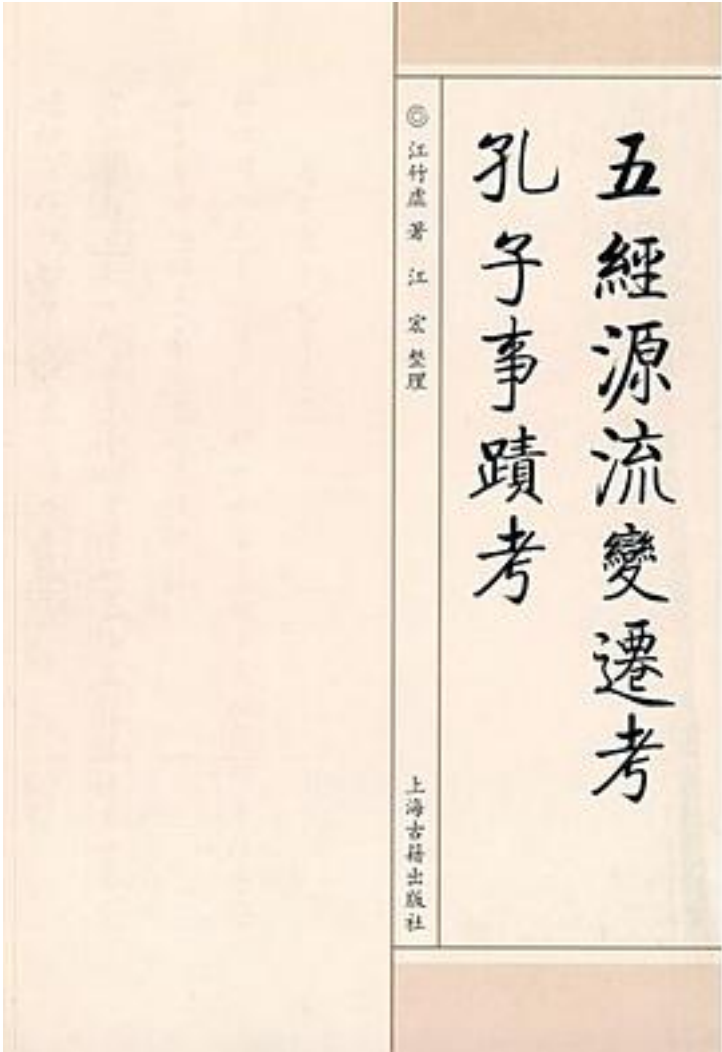 五經源流變遷考
孔子事蹟考
◎江竹虛著 江宏整理
上海古籍出版社